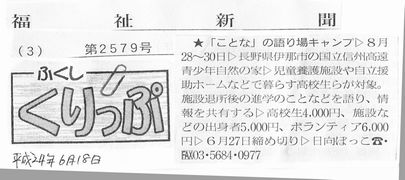 福祉新聞
(3) 第2579号
ふくし
くりっぷ
平成24年6月18日
★「ことな」の語り場キャンプ▷8月
28〜30日▷長野県伊那市の国立信州高遠
青少年自然の家▷児童養護施設や自立援
助ホームなどで暮らす高校生らが対象。
施設退所後の進学のことなどを語り、情
報を共有する▷高校生4,000円、施設な
どの出身者5,000円、ボランティア6,000
円▷6月27日締め切り▷日向ぼっこ☎・
FAX03・5684・0977